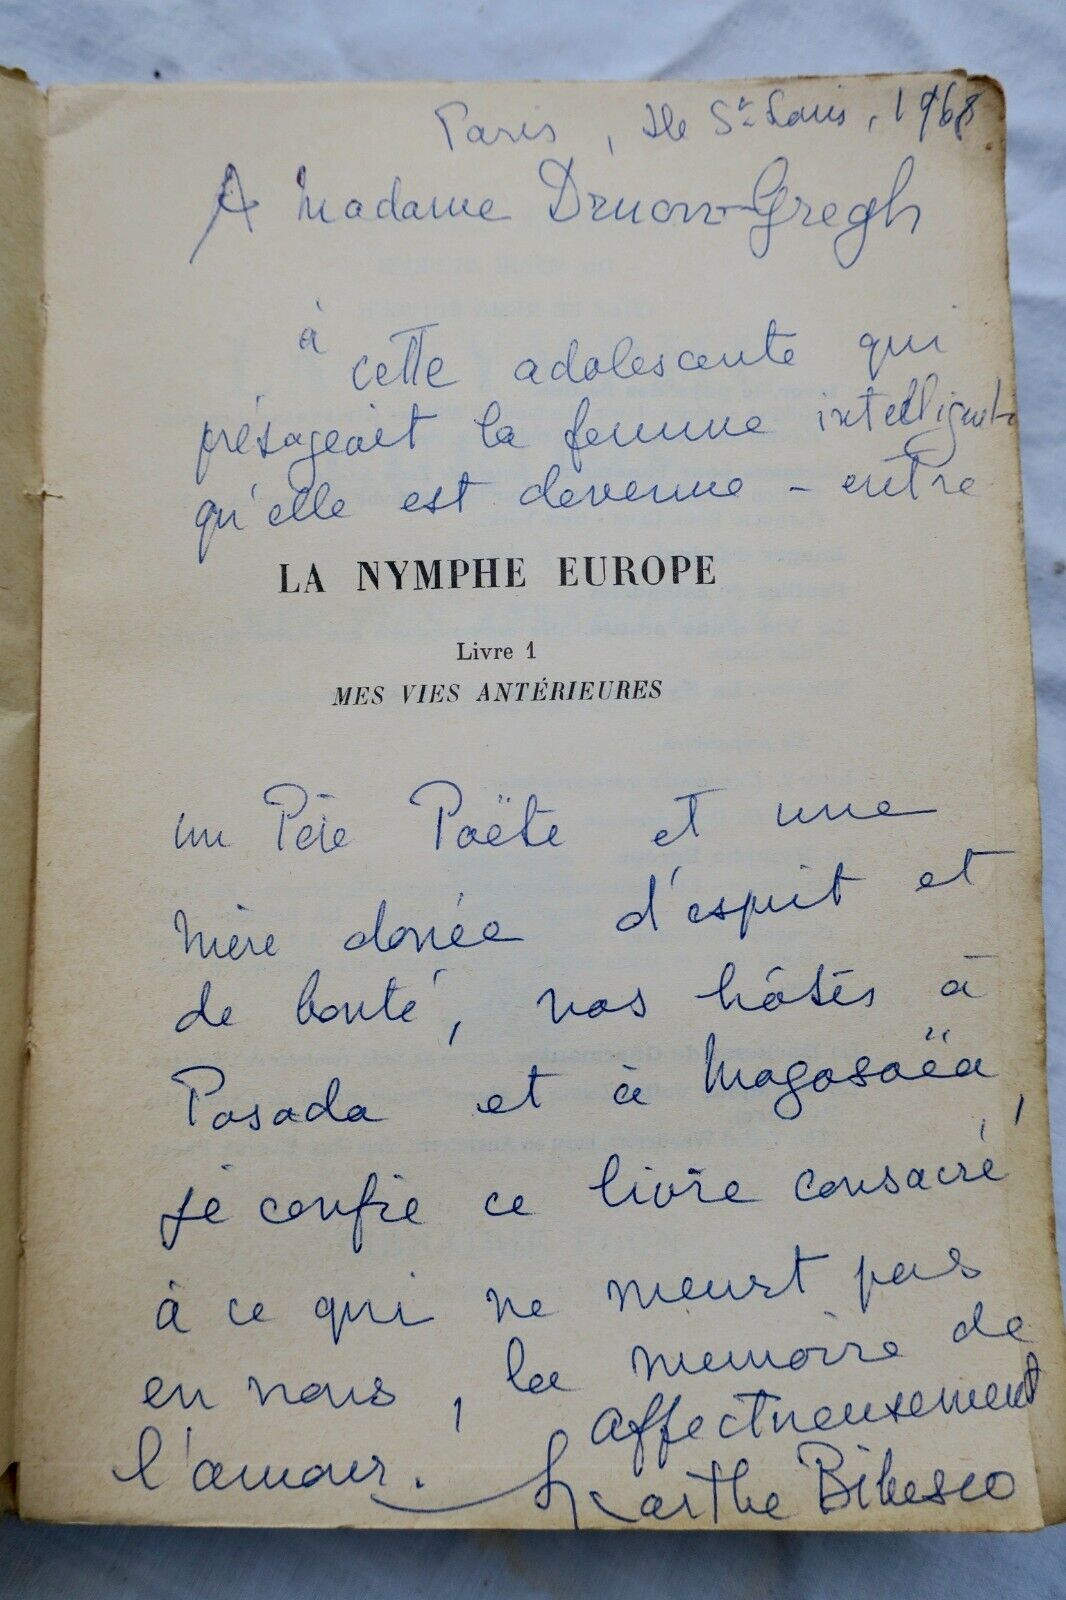 Paris, Ile St Louis, 1968
A Madame Druon-Gregh
à cette adolescente qui
présageait la femme intelligente
qu'elle est devenue – entre
LA NYMPHE EUROPE
Livre 1
MES VIES ANTÉRIEURES
un Père Poëte et une
Mère donée d'esprit et
de bonté, nos hôtes à
Posada et à Mogosoëa,
je confie ce livre consacré
à ce qui ne meurt pas
en nous, la memoire de
l'amour. affectueusement
Marthe Bibesco